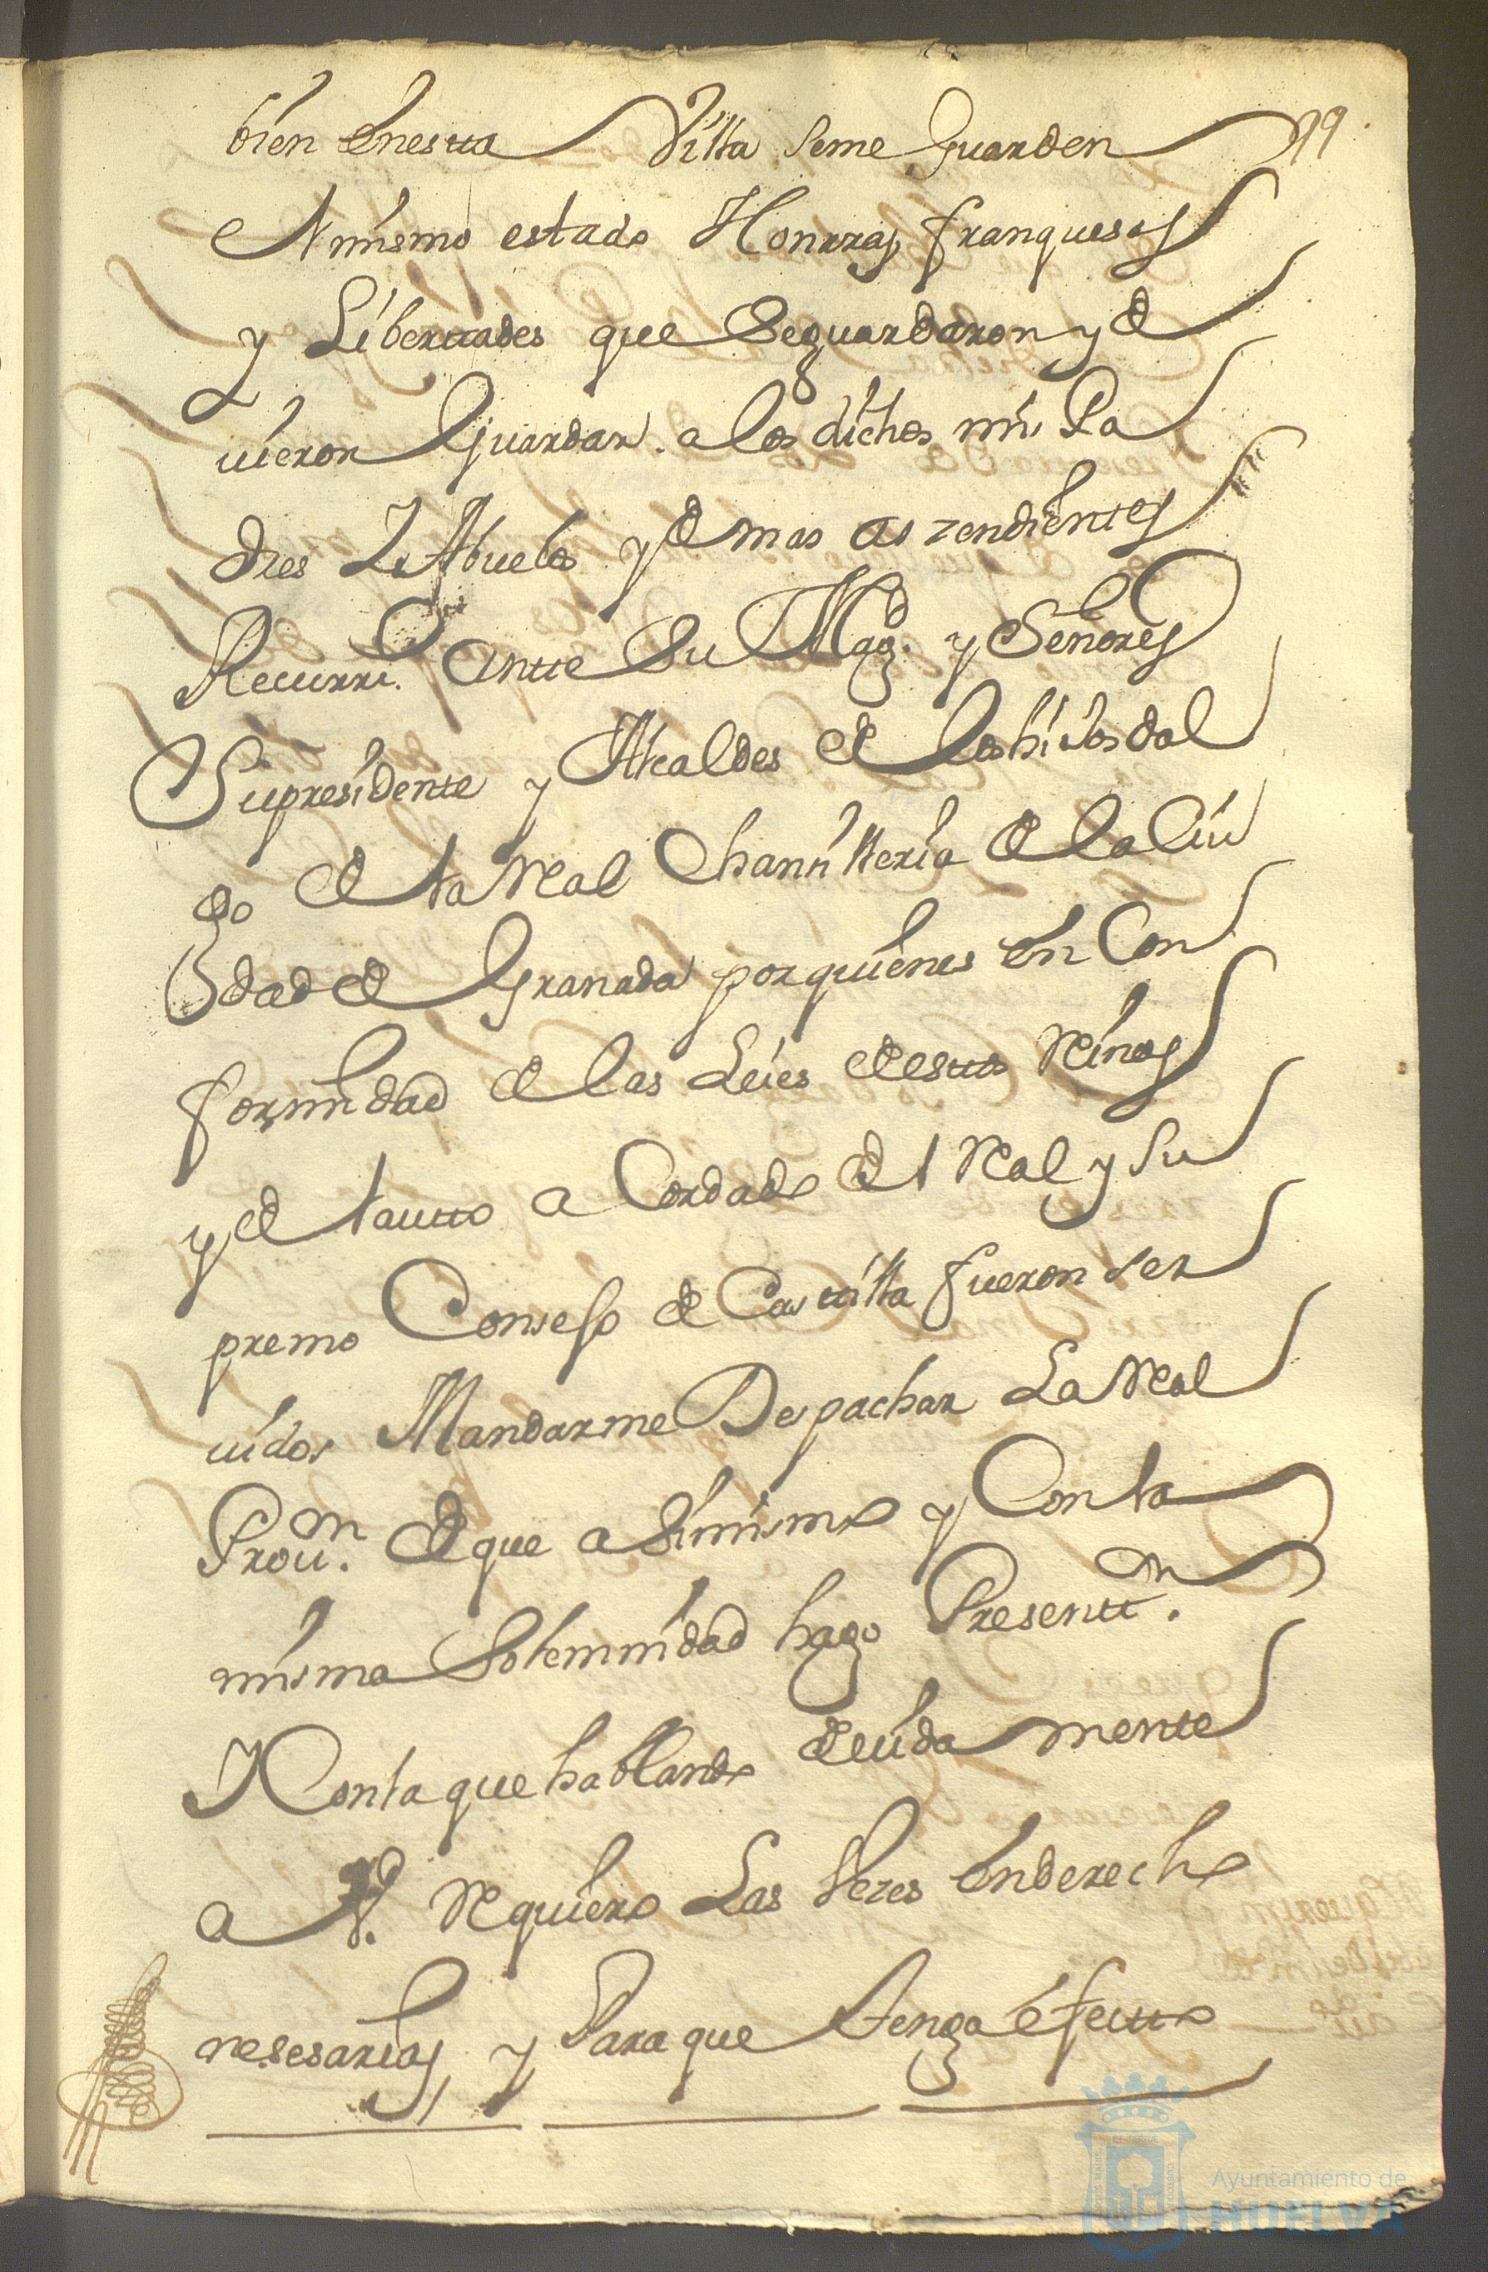 bien en estta Villa se me Guarden 99
el mismo estado Honrras franquesas
y Liberttades que Se guardaron y de
uieron Guardar. a los dichos mis Pa
dres Y Abuelos y de mas aszendienttes
Recurri. antte Su Magd. y Señores
Su presidentte y Alcaldes de los hijos dal
go de la Real Chanzilleria de la Ciu
dad de Granada por quienes en Con
formidad de las Leies destos Reinos
y del autto a Cordado del Real y Su
premo Consejo de Casttilla fueron ser
uidos Mandarme Despachar La Real
Prouon. de que a Simismo y Con la
misma Solemnidad hago Presenttn.
Y Con la que hablando deuida mentte
a Vd. Requiero Las Vezes en derecho
nesesarias, y Para que tenga efectto
Ayuntamiento de
HUELVA